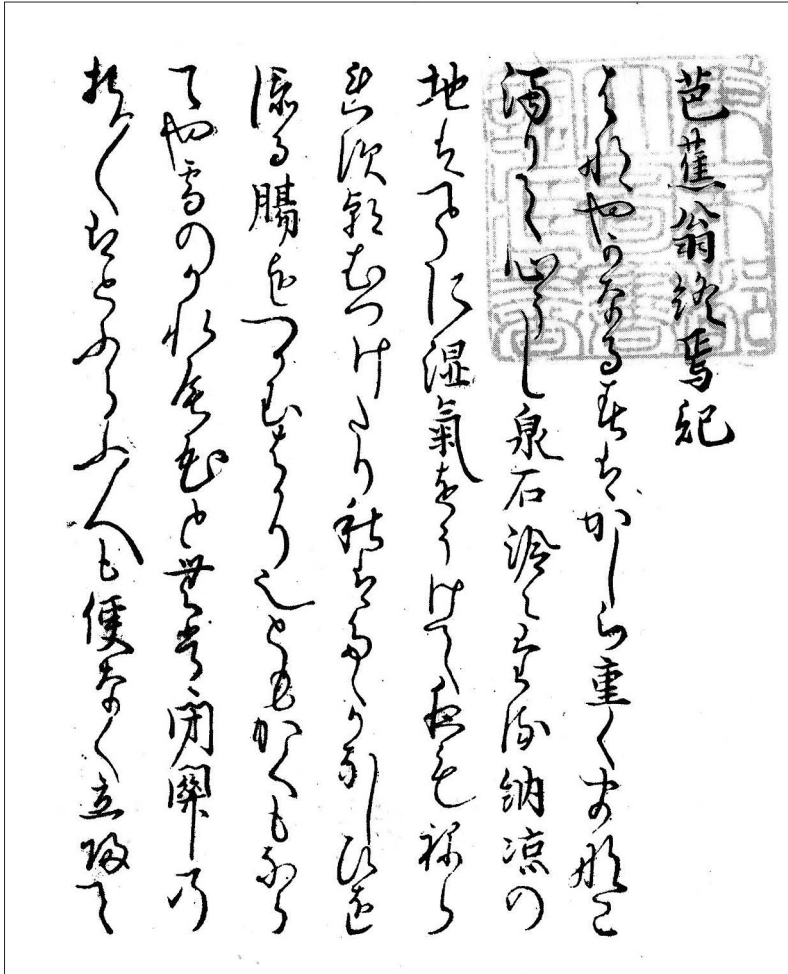 芭蕉翁終焉記
はなやかなる春はかしら重くまなこ
濁りて心うし泉石冷々たる納凉の
地はことに湿氣をうけて夜もねら
れす朝むつけたり秋はたゝかなしひを
添る腸をつかむはかり也ともかくもなら
てや雪のかれ尾花と無常閉關の
折〳〵はとふらふ人も便なく立帰て